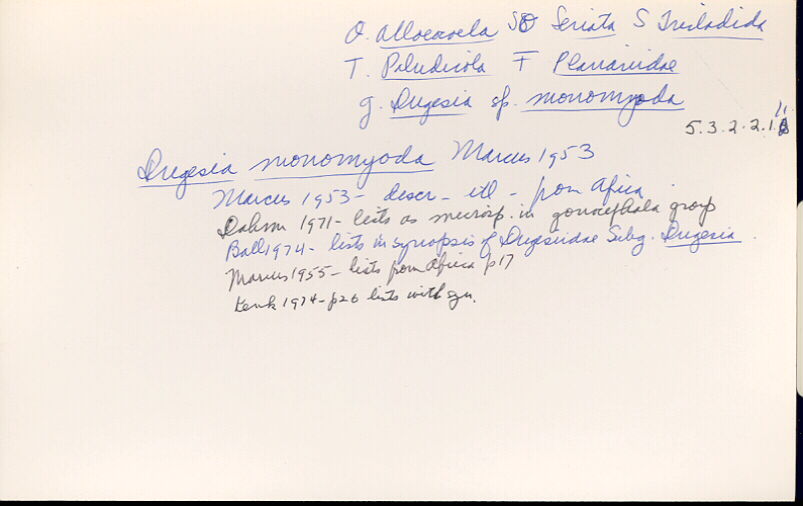 O. Alloeocoela SO Seriata S Tricladida
T. Paludicola F Planariidae
g. Dugesia sp. monomyoda
5.3.2.2.1.
Dugesia monomyoda Marcus 1953
Marcus 1953 - descr - ill - from Africa
Dahm 1971 - lists as microsp. in gonocephala group
Ball 1974 - lists in synopsis of Dugesiidae Subg. Dugesia
Marcus 1955 - lists from Africa p17
Kenk 1974 - p26 lists with syn.